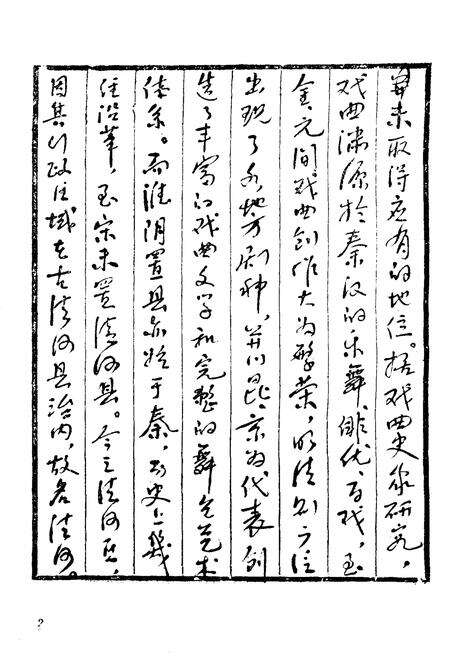 并未取得应有的地位。据戏曲史家研究，
戏曲渊源于秦汉的乐舞、俳优、百戏，至
金、元间戏曲创作大为繁荣，明清则
出现了各地方剧种，并以昆、京为代表创
造了丰富的戏曲文学和完整的舞台艺术
体系。而淮阴置县亦始于秦，历史上几
经沿革，至宋末置清河县。今之清河区，
因其行政区域在古清河县治内，故名清河。
2